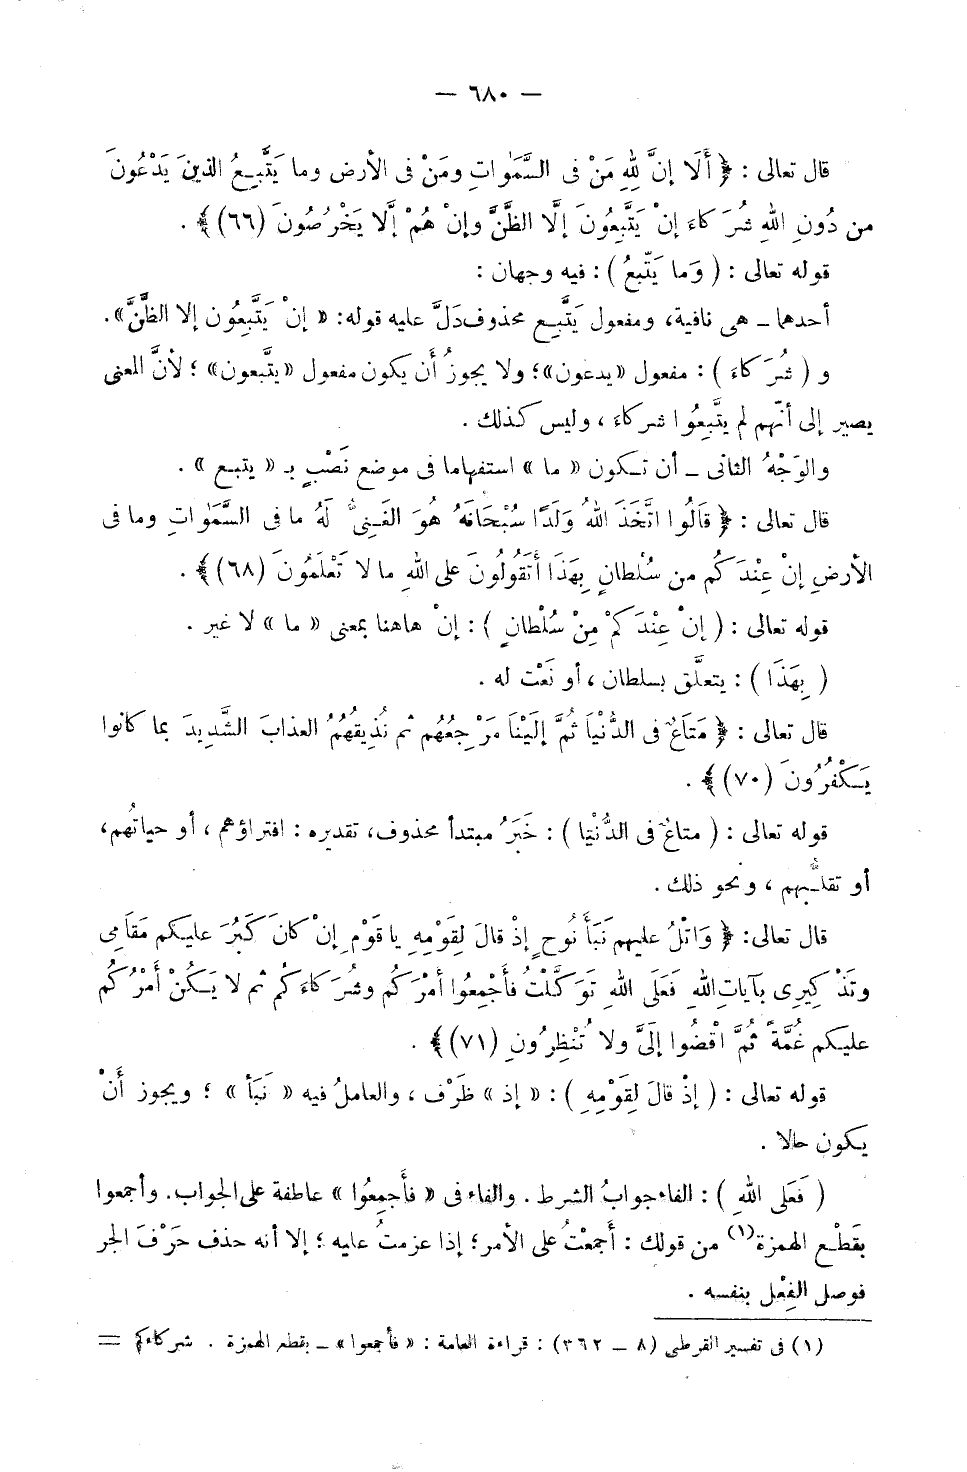 — ٦٨٠ —
قال تعالى : ﴿ أَلَا إنَّ لِلّٰهِ مَنْ فى السَّمٰواتِ ومَنْ فى الأرض وما يَتَّبِعُ الذينَ يَدْعُونَ
من دُونِ اللهِ شُرَكاءَ إنْ يَتَّبِعُونَ إلَّا الظَّنَّ وإنْ هُمْ إلَّا يَخْرُصُونَ (٦٦)﴾ .
قوله تعالى : ( وَما يَتّبعُ ) : فيه وجهان :
أحدهما ــ هى نافية، ومفعول يَتَّبِع محذوف دَلَّ عليه قوله: « إنْ يَتَّبِعُون إلا الظَّنَّ».
و ( شُرَكاءَ ) : مفعول «يدعون»؛ ولا يجوزُ أن يكون مفعول «يتَّبعون» ؛ لأنَّ المعنى
يصير إلى أنّهم لم يتَّبِعُوا شركاءَ ، وليس كذلك .
والوَجْهُ الثانى ــ أن تـكون « ما » استفهاما فى موضع نَصْبٍ بـ « يتبع » .
قال تعالى : ﴿ قَالُوا اتَّخَذَ اللهُ وَلَدًا سُبْحَانَهُ هُوَ الغَنِىُّ لَهُ ما فى السَّمٰواتِ وما فى
الأرضِ إنْ عِنْدَكُم من سُلْطانٍ بِهَذَا أَتَقُولُونَ على اللهِ ما لا تَعْلَمُونَ (٦٨)﴾ .
قوله تعالى : ( إنْ عِنْدَكُمْ مِنْ سُلْطانٍ ) : إنْ هاهنا بمعنى « ما » لا غير .
( بِهَذَا ) : يتعلَّق بسلطان ، أو نَعْت له .
قال تعالى : ﴿ مَتَاعٌ فى الدُّنْيَا ثُمَّ إلَيْنَا مَرْجِعُهُم ثم نُذِيقُهُمُ العذابَ الشَّدِيدَ بما كانوا
يَـكْفُرُونَ (٧٠)﴾ .
قوله تعالى : ( متاعٌ فى الدُّنْيَا ) : خَبَرُ مبتدأ محذوف، تقديره : افتراؤهم ، أو حياتُهم،
أو تقلّـبهم ، ونحو ذلك .
قال تعالى: ﴿ وَاتْلُ عليهم نَبَأَ نُوحٍ إذْ قالَ لِقَوْمِهِ يا قَوْمِ إنْ كانَ كَبُرَ عليـكم مَقَامِى
وتَذْكِيرِى بآياتِ اللهِ فَعَلَى اللهِ تَوَكَّلْتُ فأَجْمِعُوا أَمْرَكُم وشُرَكاءَكُم ثم لا يَـكُنْ أَمْرُكُم
عليـكم غُمَّةً ثُمَّ اقْضُوا إلَىَّ ولا تُنْظِرُونِ (٧١)﴾ .
قوله تعالى : ( إذْ قالَ لِقَوْمِهِ ) : « إذ » ظَرْف ، والعاملُ فيه « نَبَأ » ؛ ويجوز أَنْ
يكون حالا .
( فَعَلَى اللهِ ) : الفاء جوابُ الشرط . والفاء فى « فأَجمِعُوا » عاطفة على الجواب. وأجمعوا
بقَطْـعِ الهمزة(١) من قولك : أَجمعْتُ على الأمر؛ إذا عزمتُ عليه ؛ إلا أنه حذف حَرْفَ الجر
فوصل الفِعْل بنفسه .
(١) فى تفسير القرطبى (٨ ــ ٣٦٢) : قراءة العامة : « فأجمعوا» ــ بقطع الهمزة . شركاءكم =